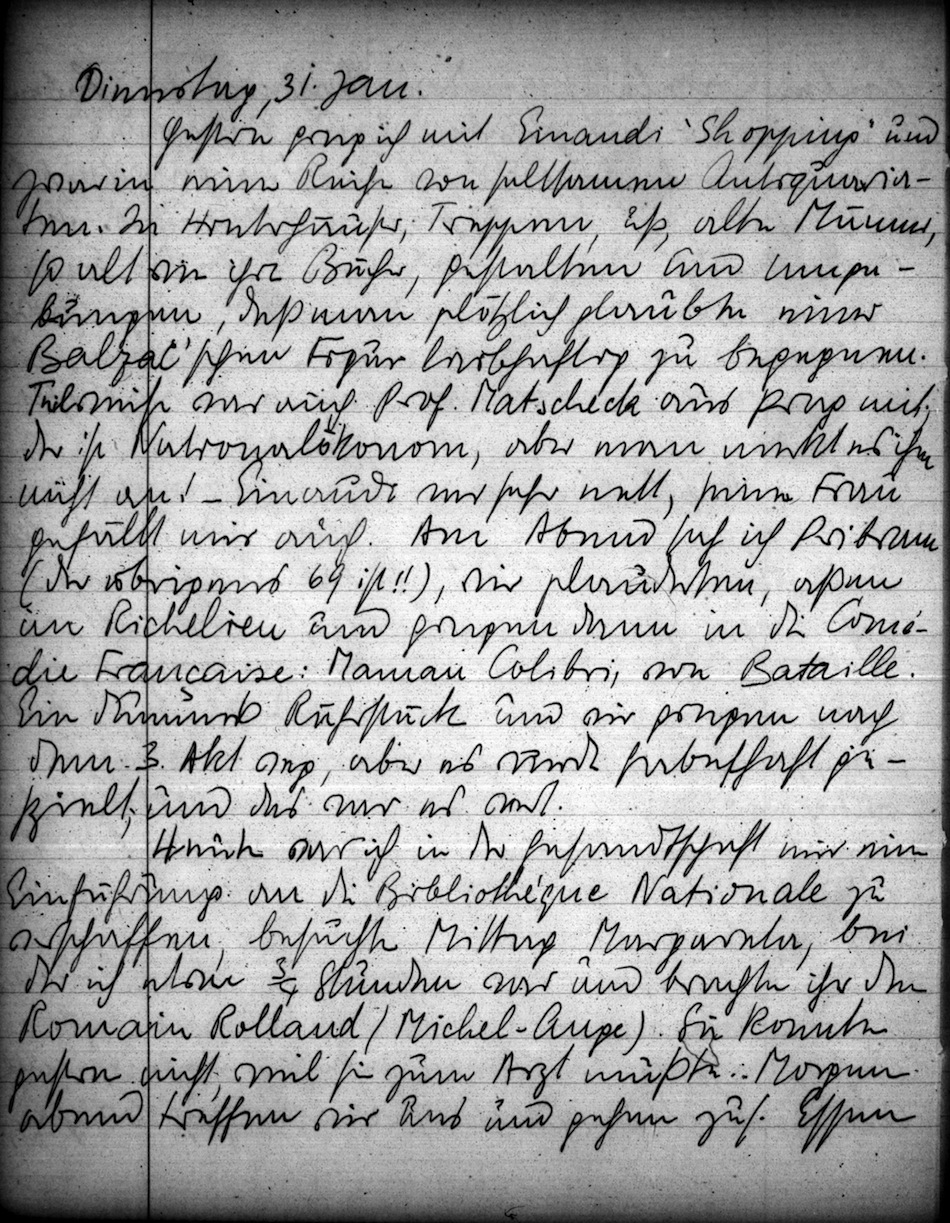 Dienstag, 31. Jan.
Gestern ging ich mit Einaudi 'Shopping' und
zwar in eine Reihe von seltsamen Antiquaria-
ten. In Hinterhäuser, Treppen, alte Männer,
so alt wie ihre Bücher, Gestalten und Umge-
bungen, daß man plötzlich glaubte einer
Balzac'schen Figur leibhaftig zu begegnen.
Teilweise war auch Prof. Matscheck aus Prag mit,
der ist Nationalökonom, aber man merkt es ihm
nicht an! – Einaudi war sehr nett, seine Frau
gefällt mir auch. Am Abend sah ich Pribram
(der übrigens 69 ist!!), wir plauderten, aßen
im Richelieu und gingen dann in die Comé-
die Française: Maman Colibri, von Bataille.
Ein dummes Rührstück und wir gingen nach
dem 3. Akt weg, aber es wurde fabelhaft ge-
spielt, und das war es wert.
Heute war ich in der Gesandtschaft mir eine
Einführung an die Bibliothèque Nationale zu
verschaffen, besuchte Mittag Margareta, bei
der ich etwa ¾ Stunden war und brachte ihr den
Romain Rolland (Michel-Ange). Sie konnte
gestern nicht, weil sie zum Arzt mußte. Morgen
abend treffen wir uns und gehen zus. Essen